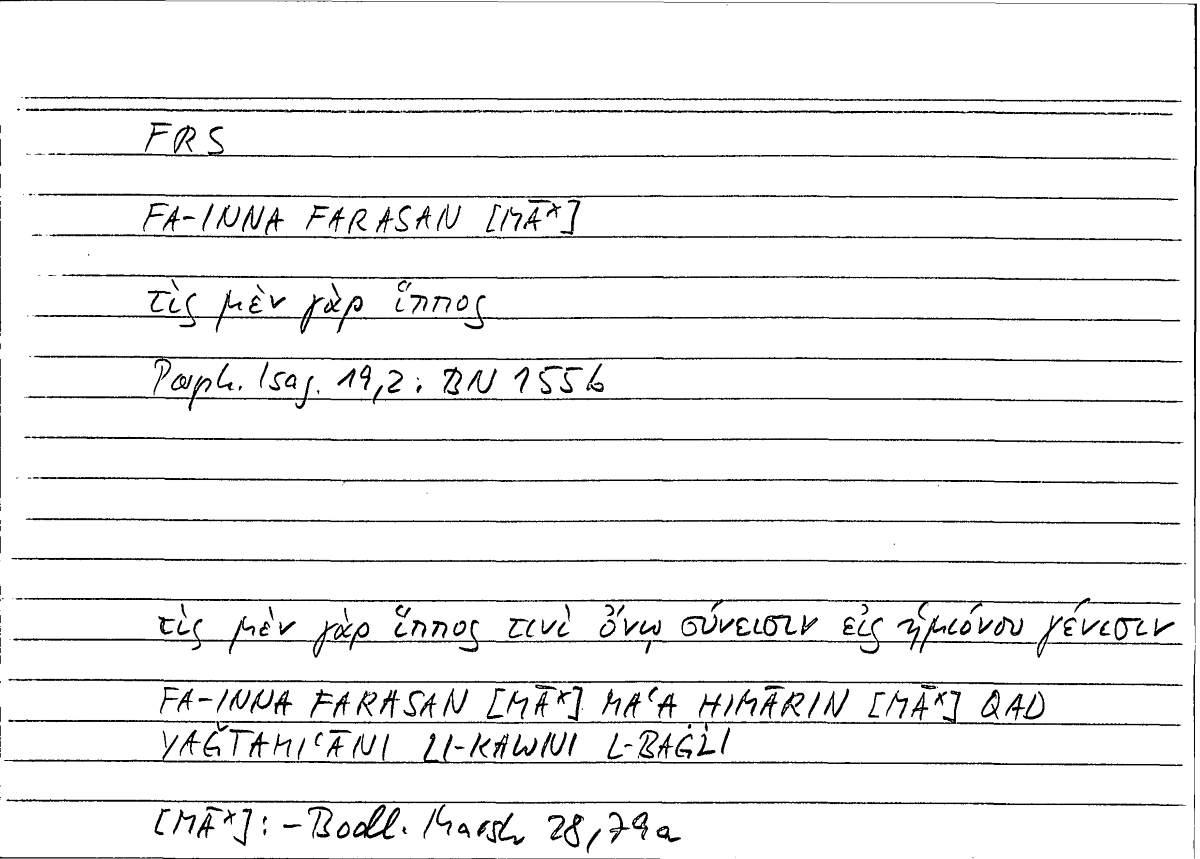 FRS
FA-INNA FARASAN [MĀˣ]
τὶς μὲν γὰρ ἵππος
Porph. Isag. 19,2: BN 155b
τὶς μὲν γὰρ ἵππος τινὶ ὄνῳ σύνεισιν εἰς ἡμιόνου γένεσιν
FA-INNA FARASAN [MĀˣ] MAʿA HIMĀRIN [MĀˣ] QAD
YAǦTAMIʿĀNI LI-KAWNI L-BAĠLI
[MĀˣ]: – Bodl. Marsh 28,79a